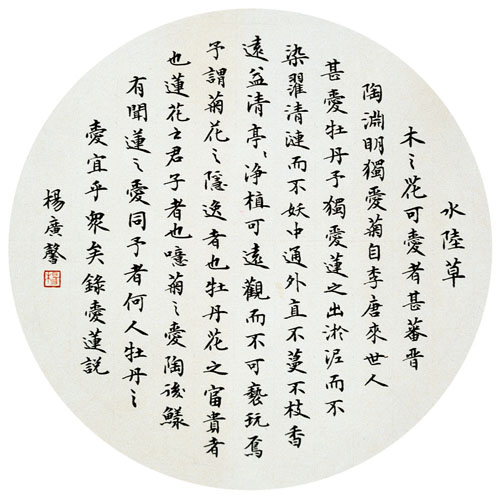 水陸草
木之花可愛者甚蕃晉
陶淵明獨愛菊自李唐來世人
甚愛牡丹予獨愛蓮之出淤泥而不
染濯清漣而不妖中通外直不蔓不枝香
遠益清亭〻淨植可遠觀而不可褻玩焉
予謂菊花之隱逸者也牡丹花之富貴者
也蓮花之君子者也噫菊之愛陶後鮮
有聞蓮之愛同予者何人牡丹之
愛宜乎衆矣錄愛蓮説
楊廣馨